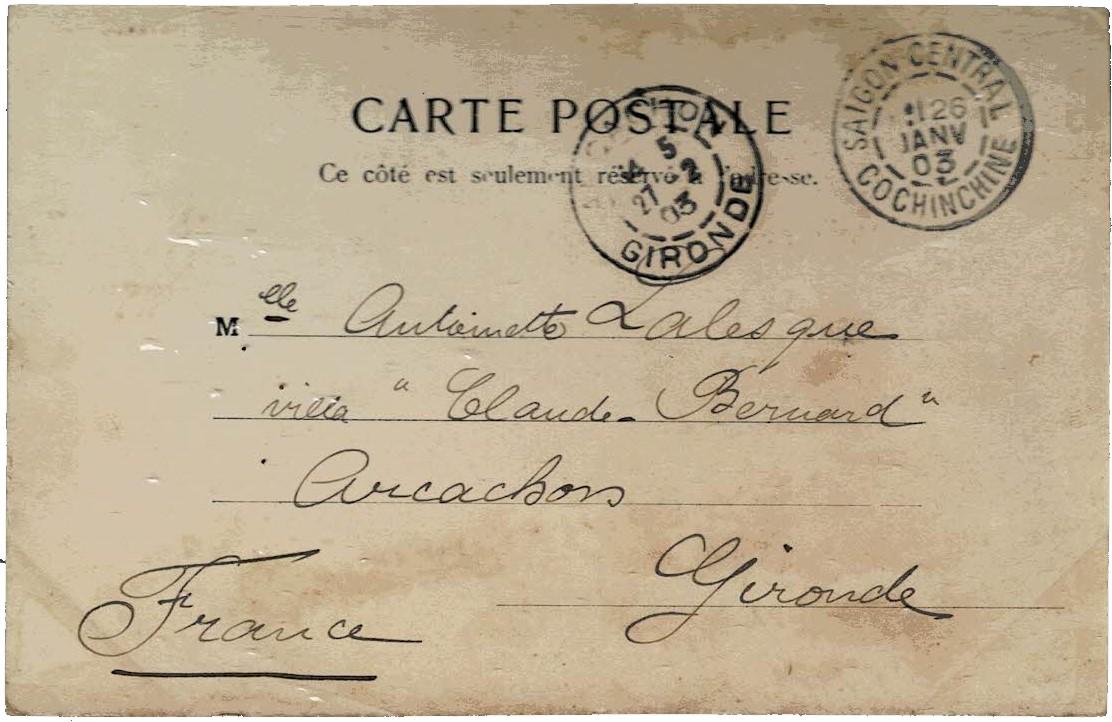 CARTE POSTALE
Ce côté est seulement réservé à l'adresse.
SAIGON CENTRAL
26
JANV
03
COCHINCHINE
5
27 2
03
GIRONDE
Melle Antoinette Lalesque
villa "Claude-Bernard"
Arcachon
Gironde
France